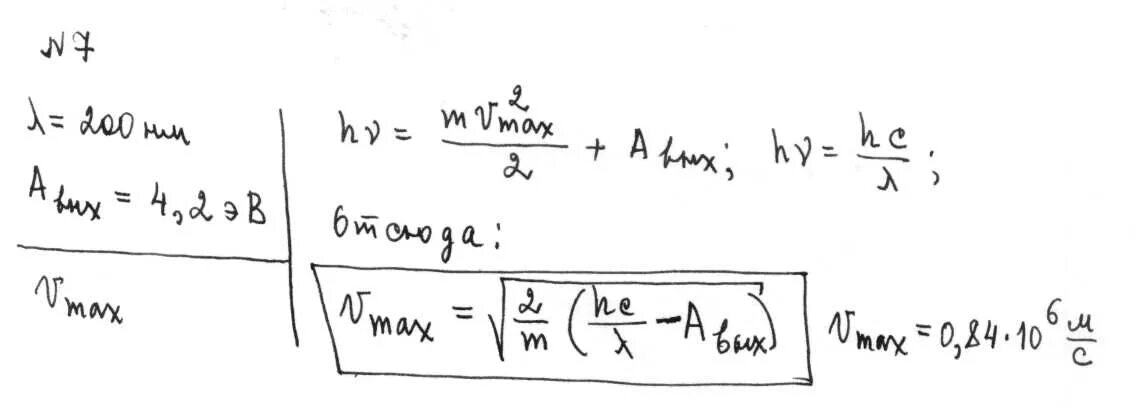 N7
λ = 200 нм
Aвых = 4,2 эВ
vmax
hν = mv²max / 2 + Aвых; hν = hc / λ;
Отсюда:
vmax = √(2/m (hc/λ − Aвых))
vmax = 0,84·10⁶ м/с